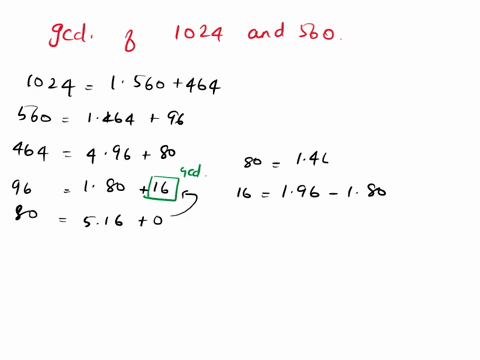 gcd. of 1024 and 560.
1024 = 1.560 + 464
560 = 1.464 + 96
464 = 4.96 + 80
gcd.
96 = 1.80 + 16
80 = 5.16 + 0
80 = 1.46
16 = 1.96 - 1.80